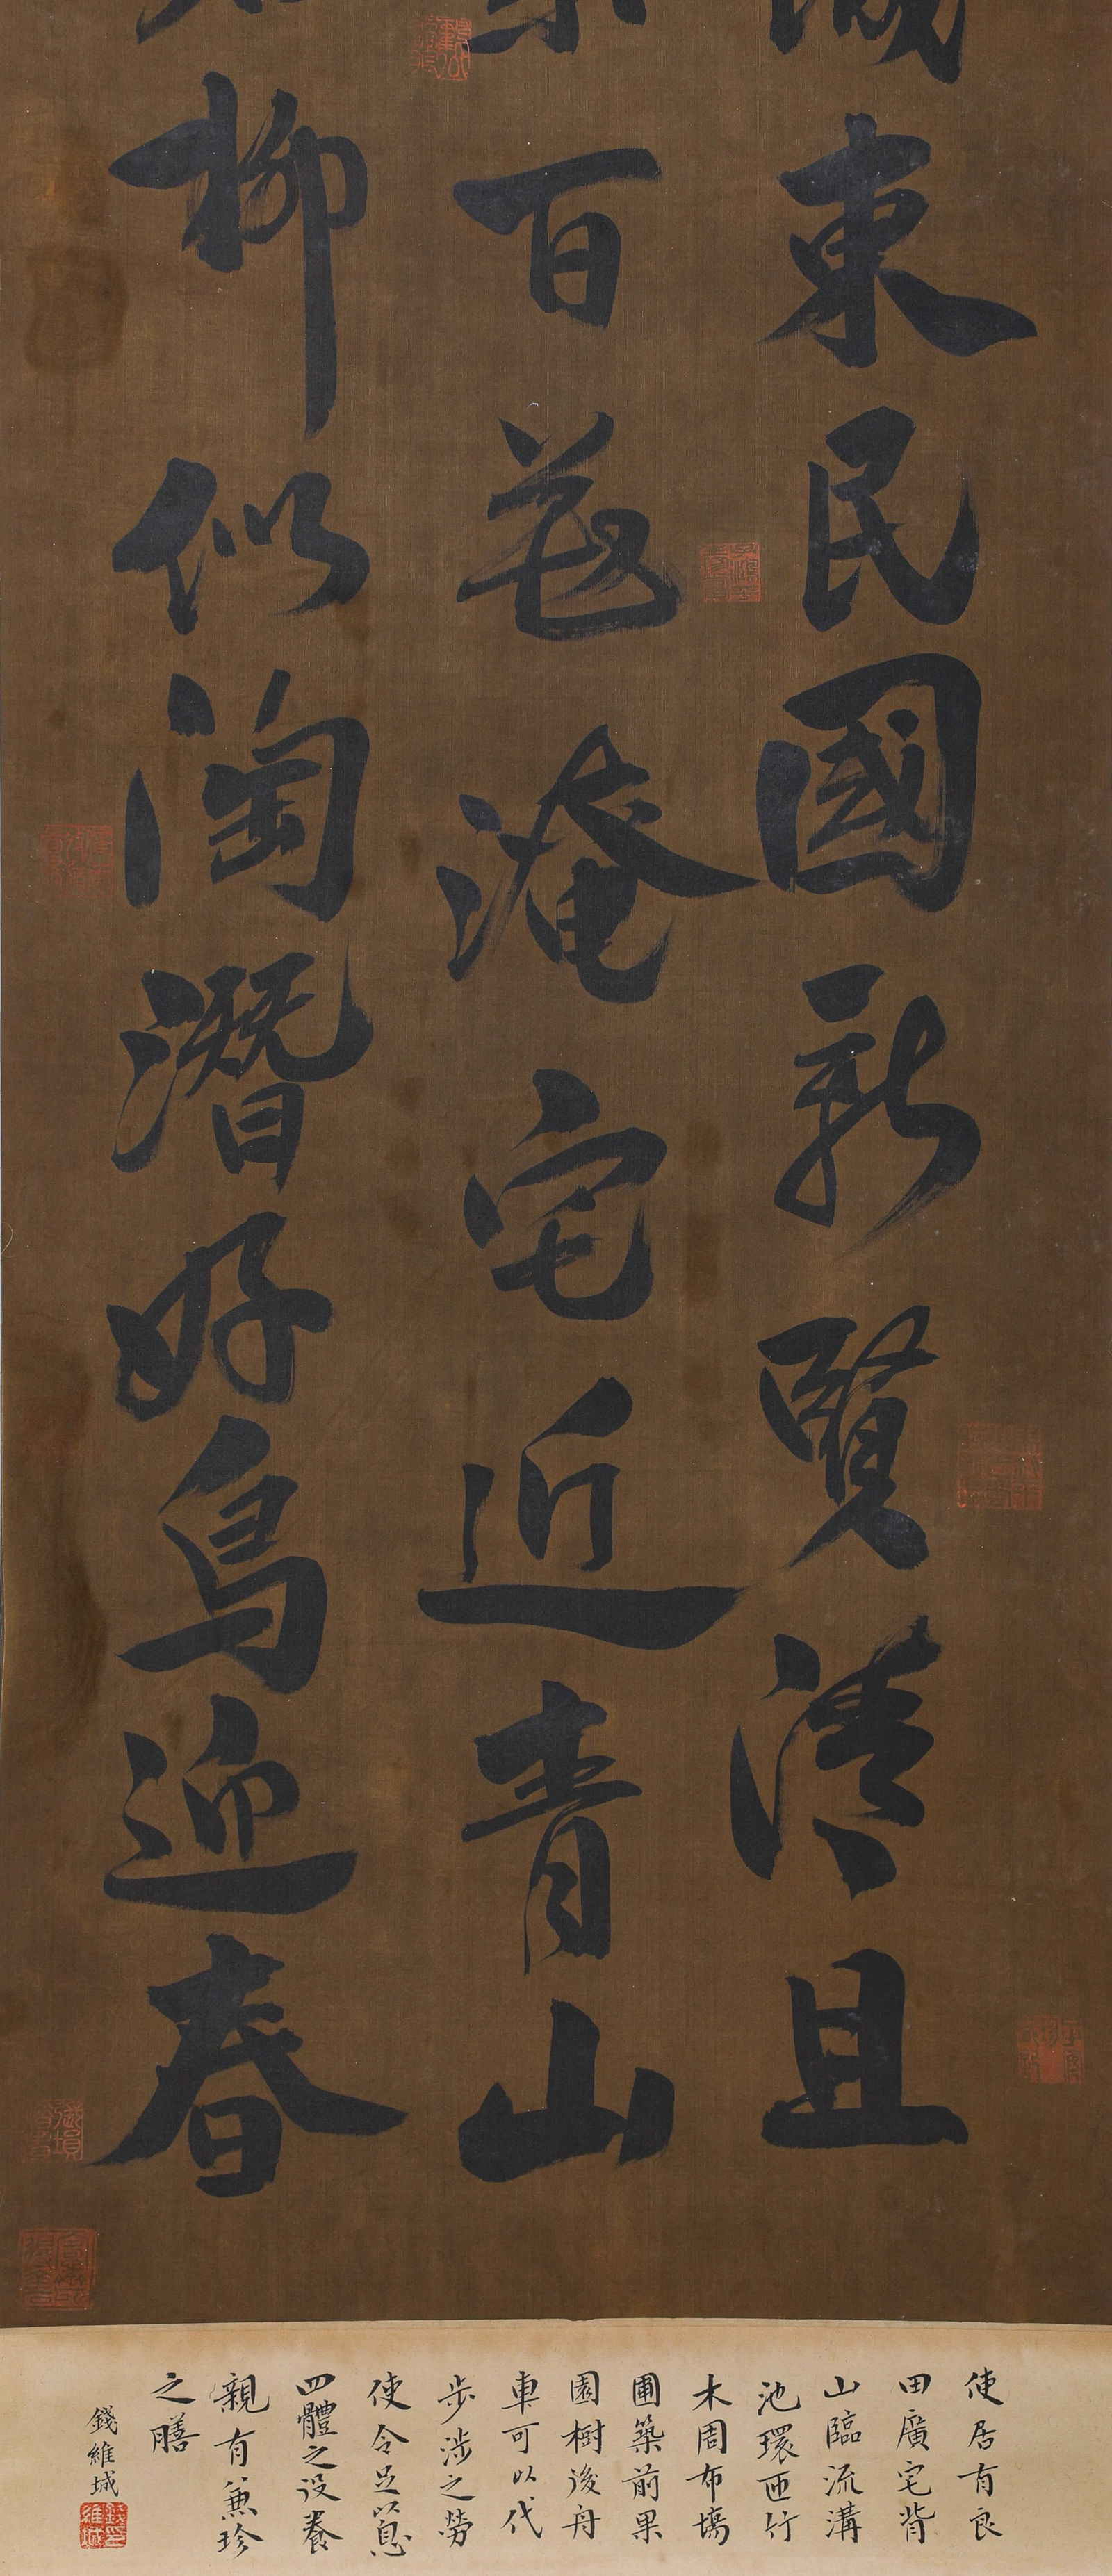 東民國新賢清且
百花淹宅近青山
柳似淘潛好鳥迎春
使居有良
田廣宅背
山臨流溝
池環匝竹
木周布塲
圃築前果
園樹後舟
車可以代
步涉之勞
使令足以息
四體之役養
親有兼珍
之膳
錢維城